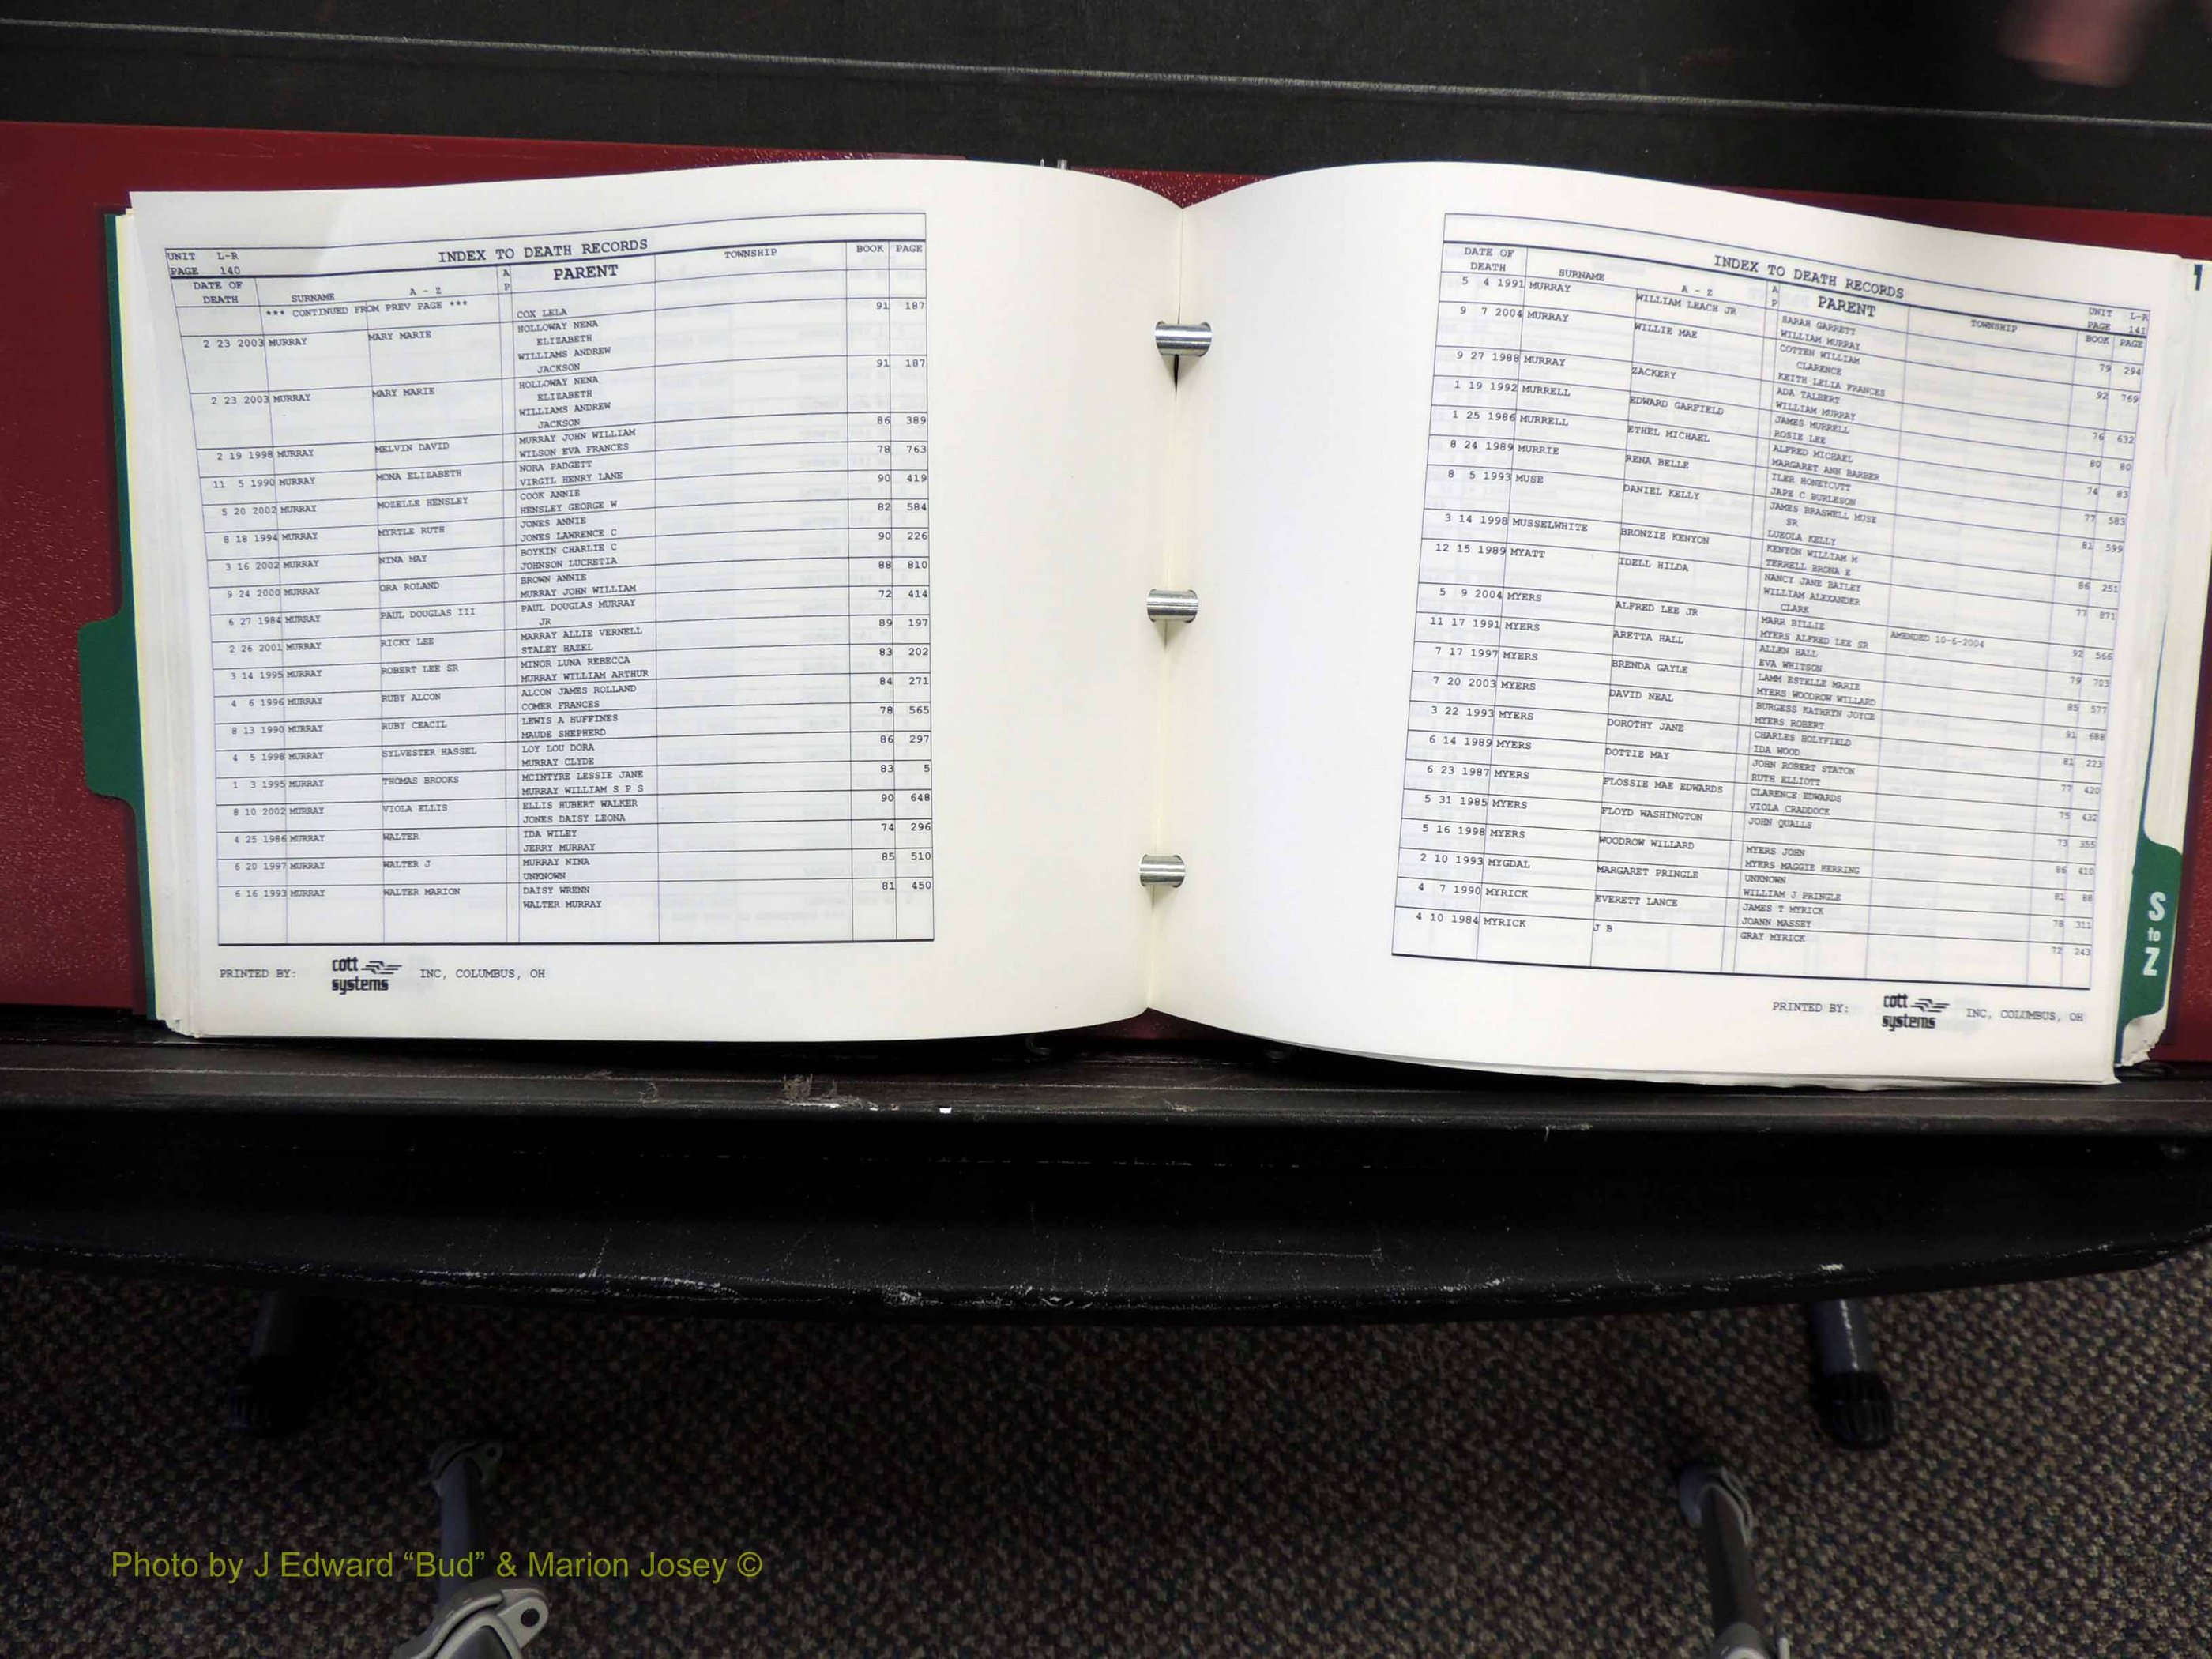 UNIT L-R
PAGE 140
INDEX TO DEATH RECORDS
DATE OF DEATH SURNAME A - Z A P PARENT TOWNSHIP BOOK PAGE
*** CONTINUED FROM PREV PAGE *** COX LELA
2 23 2003 MURRAY MARY MARIE HOLLOWAY NENA 91 187
ELIZABETH
WILLIAMS ANDREW
JACKSON
2 23 2003 MURRAY MARY MARIE HOLLOWAY NENA 91 187
ELIZABETH
WILLIAMS ANDREW
JACKSON
2 19 1998 MURRAY MELVIN DAVID MURRAY JOHN WILLIAM 86 389
WILSON EVA FRANCES
11 5 1990 MURRAY MONA ELIZABETH NORA PADGETT 78 763
VIRGIL HENRY LANE
5 20 2002 MURRAY MOZELLE HENSLEY COOK ANNIE 90 419
HENSLEY GEORGE W
8 18 1994 MURRAY MYRTLE RUTH JONES ANNIE 82 584
JONES LAWRENCE C
3 16 2002 MURRAY NINA MAY BOYKIN CHARLIE C 90 226
JOHNSON LUCRETIA
9 24 2000 MURRAY ORA ROLAND BROWN ANNIE 88 810
MURRAY JOHN WILLIAM
6 27 1984 MURRAY PAUL DOUGLAS III PAUL DOUGLAS MURRAY 72 414
JR
2 26 2001 MURRAY RICKY LEE MARRAY ALLIE VERNELL 89 197
STALEY HAZEL
3 14 1995 MURRAY ROBERT LEE SR MINOR LUNA REBECCA 83 202
MURRAY WILLIAM ARTHUR
4 6 1996 MURRAY RUBY ALCON ALCON JAMES ROLLAND 84 271
COMER FRANCES
8 13 1990 MURRAY RUBY CEACIL LEWIS A HUFFINES 78 565
MAUDE SHEPHERD
4 5 1998 MURRAY SYLVESTER HASSEL LOY LOU DORA 86 297
MURRAY CLYDE
1 3 1995 MURRAY THOMAS BROOKS MCINTYRE LESSIE JANE 83 5
MURRAY WILLIAM S P S
8 10 2002 MURRAY VIOLA ELLIS ELLIS HUBERT WALKER 90 648
JONES DAISY LEONA
4 25 1986 MURRAY WALTER IDA WILEY 74 296
JERRY MURRAY
6 20 1997 MURRAY WALTER J MURRAY NINA 85 510
UNKNOWN
6 16 1993 MURRAY WALTER MARION DAISY WRENN 81 450
WALTER MURRAY
PRINTED BY: cott systems INC, COLUMBUS, OH
INDEX TO DEATH RECORDS
UNIT L-R
PAGE 141
DATE OF DEATH SURNAME A - Z A P PARENT TOWNSHIP BOOK PAGE
5 4 1991 MURRAY WILLIAM LEACH JR SARAH GARRETT 79 294
WILLIAM MURRAY
9 7 2004 MURRAY WILLIE MAE COTTEN WILLIAM 92 769
CLARENCE
KEITH LELIA FRANCES
9 27 1988 MURRAY ZACKERY ADA TALBERT 76 632
WILLIAM MURRAY
1 19 1992 MURRELL EDWARD GARFIELD JAMES MURRELL 80 80
ROSIE LEE
1 25 1986 MURRELL ETHEL MICHAEL ALFRED MICHAEL 74 83
MARGARET ANN BARBER
8 24 1989 MURRIE RENA BELLE ILER HONEYCUTT 77 583
JAPE C BURLESON
8 5 1993 MUSE DANIEL KELLY JAMES BRASWELL MUSE 81 599
SR
LUEOLA KELLY
3 14 1998 MUSSELWHITE BRONZIE KENYON KENYON WILLIAM M 86 251
TERRELL BRONA E
12 15 1989 MYATT IDELL HILDA NANCY JANE BAILEY 77 871
WILLIAM ALEXANDER
CLARK
5 9 2004 MYERS ALFRED LEE JR MARR BILLIE AMENDED 10-6-2004 92 566
MYERS ALFRED LEE SR
11 17 1991 MYERS ARETTA HALL ALLEN HALL 79 703
EVA WHITSON
7 17 1997 MYERS BRENDA GAYLE LAMM ESTELLE MARIE 85 577
MYERS WOODROW WILLARD
7 20 2003 MYERS DAVID NEAL BURGESS KATHRYN JOYCE 91 688
MYERS ROBERT
3 22 1993 MYERS DOROTHY JANE CHARLES HOLYFIELD 81 223
IDA WOOD
6 14 1989 MYERS DOTTIE MAY JOHN ROBERT STATON 77 420
RUTH ELLIOTT
6 23 1987 MYERS FLOSSIE MAE EDWARDS CLARENCE EDWARDS 75 432
VIOLA CRADDOCK
5 31 1985 MYERS FLOYD WASHINGTON JOHN QUALLS 73 355
5 16 1998 MYERS WOODROW WILLARD MYERS JOHN 86 410
MYERS MAGGIE HERRING
2 10 1993 MYGDAL MARGARET PRINGLE UNKNOWN 81 88
WILLIAM J PRINGLE
4 7 1990 MYRICK EVERETT LANCE JAMES T MYRICK 78 311
JOANN MASSEY
4 10 1984 MYRICK J B GRAY MYRICK 72 243
PRINTED BY: cott systems INC, COLUMBUS, OH
1
S
to
Z
Photo by J Edward “Bud” & Marion Josey ©